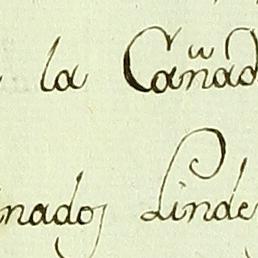 la Cañad
nados Linde